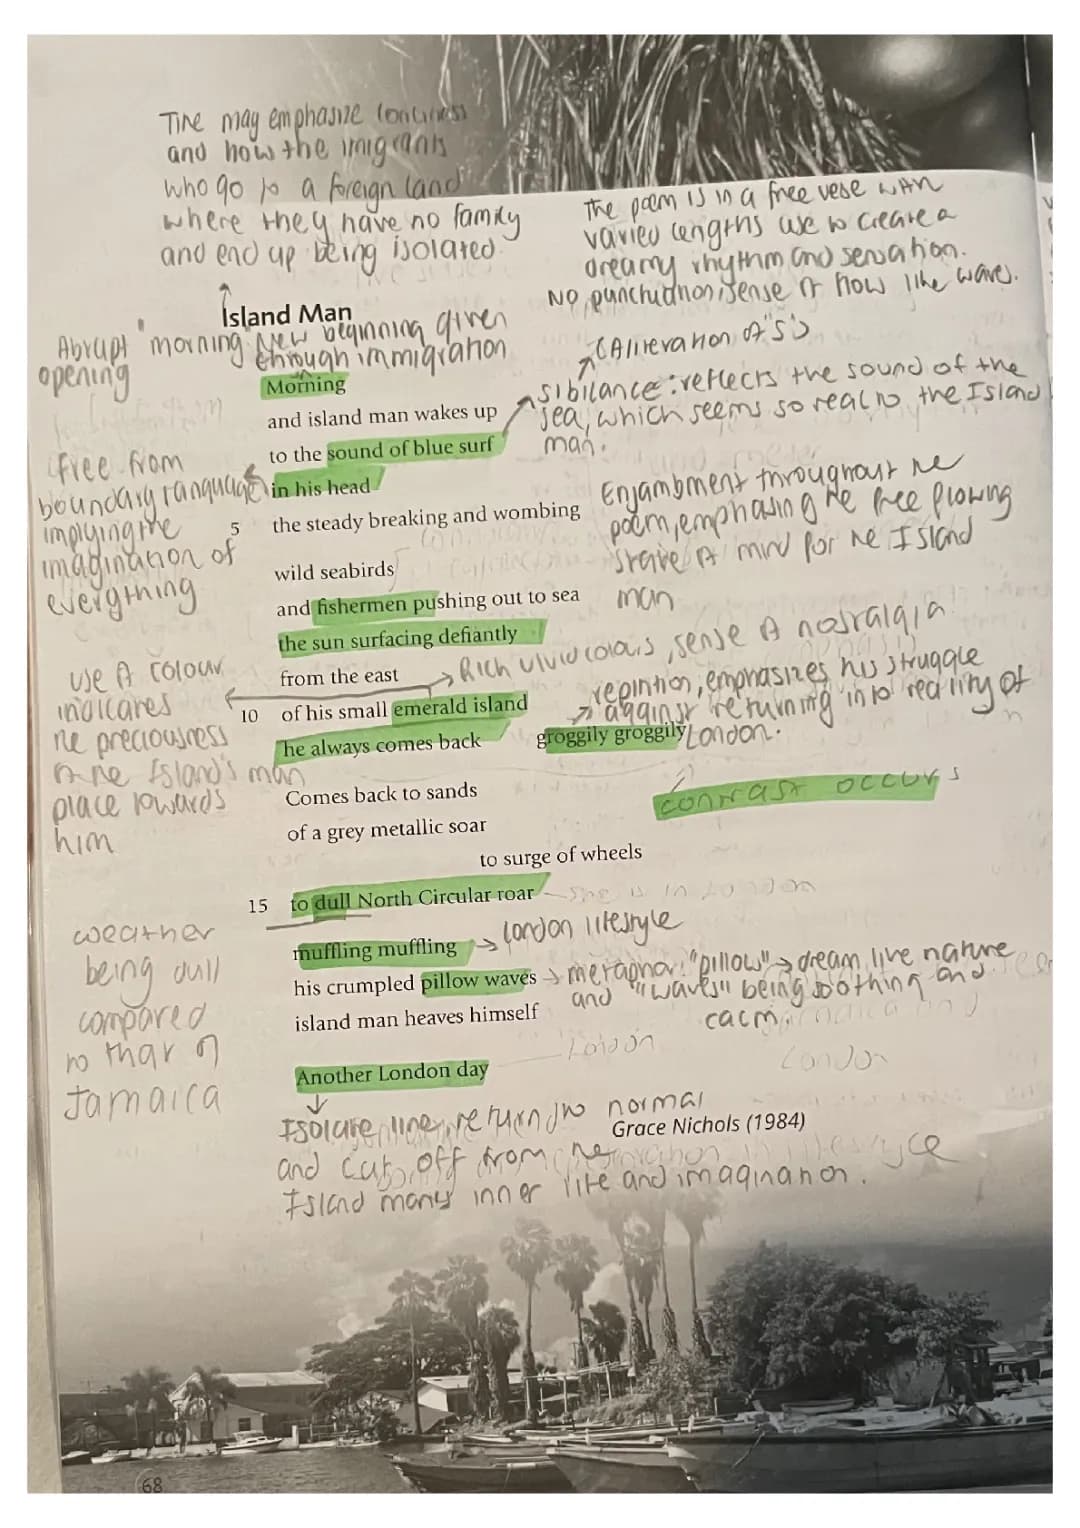 Title may emphasize lonliness
and how the imigrants
who go to a foreign land
where they have no family
and end up being isolated.
The poem is in a free vese with
varied lengths use to create a
dreamy rhythm and sensation.
No punctuation, sense of flow like waves.
Island Man
Abrupt "morning" New beginning given
opening through immigration
(Aliteration of "s")
Morning
and island man wakes up
to the sound of blue surf
in his head
5 the steady breaking and wombing
sibilance: reflects the sound of the
sea, which seems so real to the Island
man.
free from
boundary language
implying the
imagination of
everything
Enjambment throughout the
poem, emphasing the free flowing
state of mind for the Island
man
wild seabirds
and fishermen pushing out to sea
the sun surfacing defiantly
from the east
10 of his small emerald island
he always comes back groggily groggily
Rich vivid colours, sense of nostalgia
repintion, emphasizes his struggle
aggainst returning into reality of
London.
use of colour
indicates
the preciousness
of the Island's man
place towards
him
contrast occurs
Comes back to sands
of a grey metallic soar
to surge of wheels
15 to dull North Circular roar
she is in London
muffling muffling
London lifestyle
his crumpled pillow waves
metaphor: "pillow" → dream like nature
and "waves" being soothing and
calm.
island man heaves himself
weather
being dull
compared
to that of
Jamaica
London
London
Another London day
Isolate line, return to normal
Grace Nichols (1984)
and cut off from the
Island mans inner life and imagination.
68